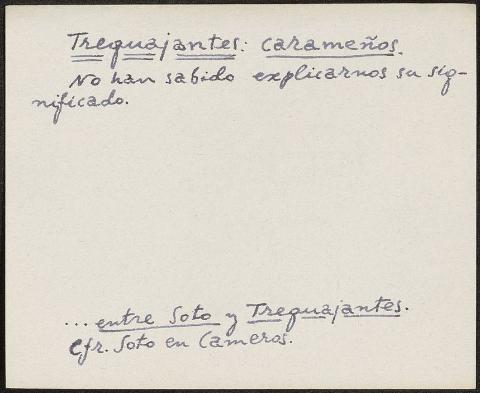 Treguajantes: carameños.
No han sabido explicarnos su sig-
nificado.
...entre Soto y Treguajantes.
Cfr. Soto en Cameros.